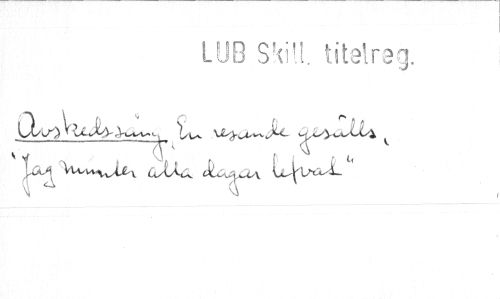 LUB Skill. titelreg.
Avskedssång, En resande gesälls,
"Jag munter alla dagar lefvat"